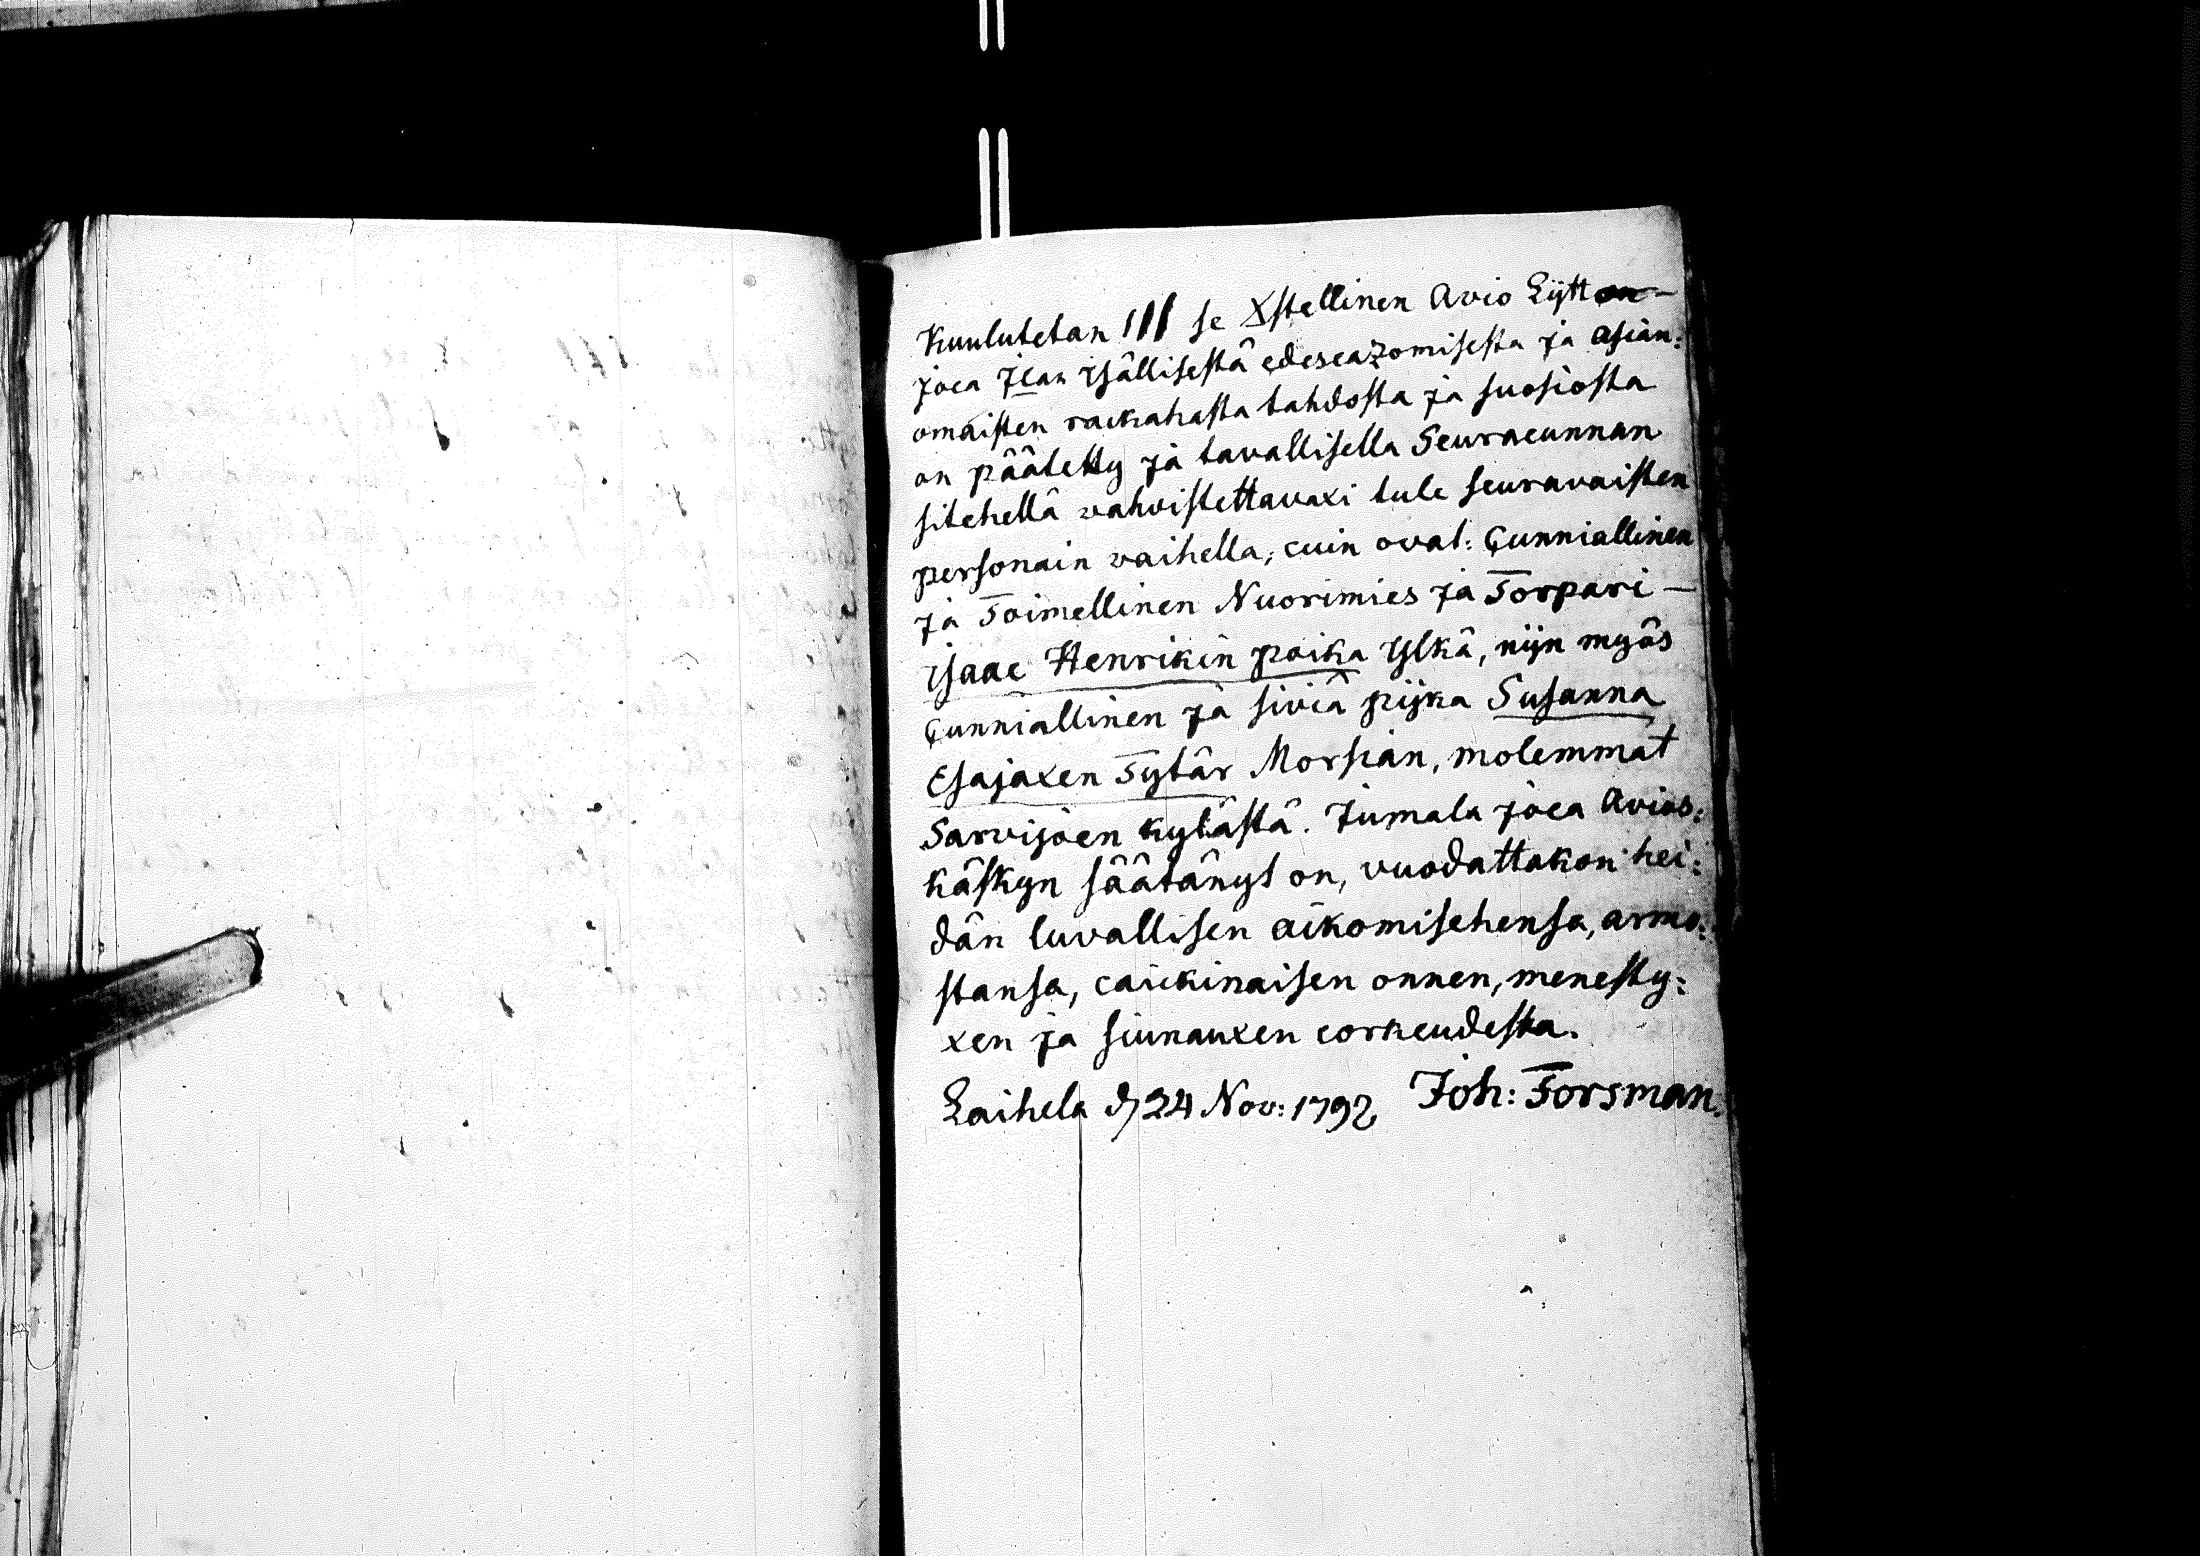 Kuulutetan III se Xstellinen Avio Lijtto
joca Jlan Isällisestä edescazomisesta ja asian:
omaisten rackahasta tahdosta ja suosiosta
on päätetty ja tavallisella Seuracunnan
sitehellä vahvistettavaxi tule seuravaisten
personain vaihella, cuin ovat: Cunniallinen
ja Toimellinen Nuorimies ja Torpari —
Isaac Henrikin poika Ylkä, nijn myös
Cunniallinen ja siviä pijka Susanna
Esajaxen Tytär Morsian, molemmat
Sarvijoen kylästä. Jumala joca Avios:
käskyn säätänyt on, vuodattakon hei:
dän luvallisen aikomisehensa, armo:
stansa, caickinaisen onnen, menesty:
xen ja siunauxen corkeudesta.
Laihela d 24 Nov: 1792 Joh: Forsman.